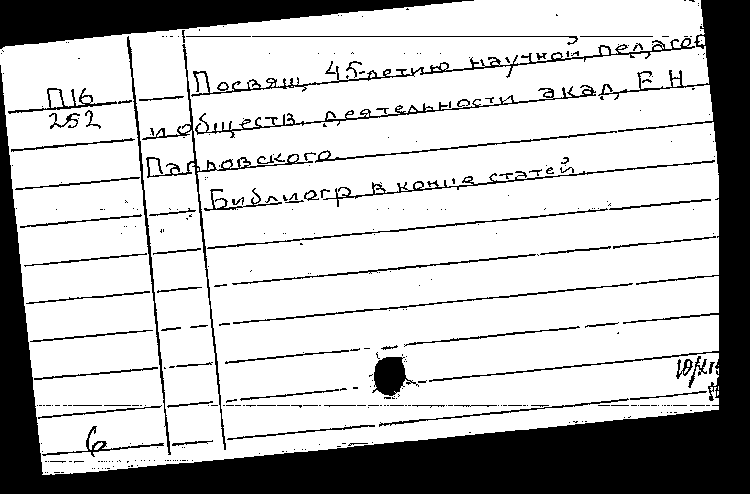 П16
252
Посвящ. 45-летию научной, педагог
и обществ. деятельности акад. Е. Н.
Павловского.
Библиогр. в конце статей.
6